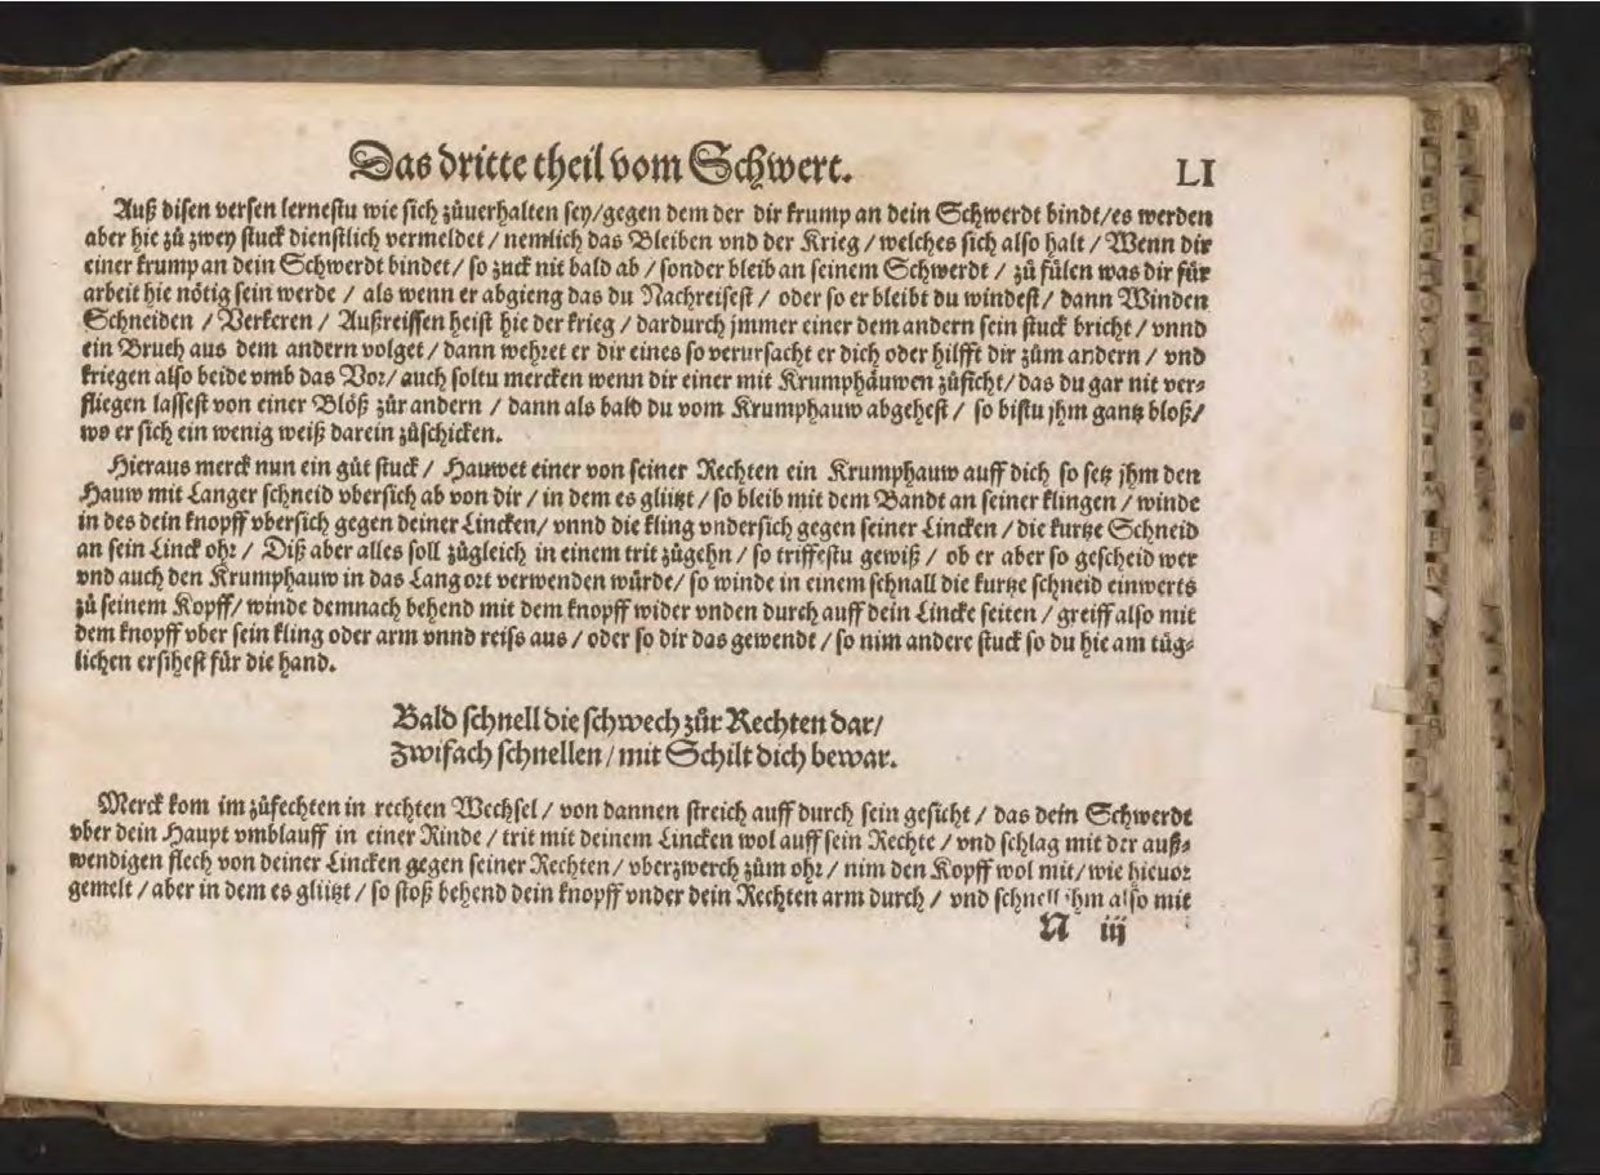 Das dritte theil vom Schwert.
LI
Auß disen versen lernestu wie sich zůuerhalten sey/gegen dem der dir krump an dein Schwerdt bindt/es werden
aber hie zů zwey stuck dienstlich vermeldet / nemlich das Bleiben vnd der Krieg / welches sich also halt / Wenn dir
einer krump an dein Schwerdt bindet/ so zuck nit bald ab / sonder bleib an seinem Schwerdt / zů fülen was dir für
arbeit hie nötig sein werde / als wenn er abgieng das du Nachreisest / oder so er bleibt du windest/ dann Winden
Schneiden / Verkeren / Außreissen heist hie der krieg / dardurch jmmer einer dem andern sein stuck bricht / vnnd
ein Bruch aus dem andern volget/ dann wehret er dir eines so verursacht er dich oder hilfft dir zům andern / vnd
kriegen also beide vmb das Vor/ auch soltu mercken wenn dir einer mit Krumphäuwen zůficht/ das du gar nit ver⸗
fliegen lassest von einer Blöß zůr andern / dann als bald du vom Krumphauw abgehest / so bistu jhm gantz bloß/
wo er sich ein wenig weiß darein zůschicken.
Hieraus merck nun ein gůt stuck / Hauwet einer von seiner Rechten ein Krumphauw auff dich so setz jhm den
Hauw mit Langer schneid vbersich ab von dir / in dem es glützt / so bleib mit dem Bandt an seiner klingen / winde
in des dein knopff vbersich gegen deiner Lincken/ vnnd die kling vndersich gegen seiner Lincken / die kurtze Schneid
an sein Linck ohr / Diß aber alles soll zůgleich in einem trit zůgehn / so triffestu gewiß / ob er aber so gescheid wer
vnd auch den Krumphauw in das Lang ort verwenden würde/ so winde in einem schnall die kurtze schneid einwerts
zů seinem Kopff/ winde demnach behend mit dem knopff wider vnden durch auff dein Lincke seiten / greiff also mit
dem knopff vber sein kling oder arm vnnd reiss aus / oder so dir das gewendt / so nim andere stuck so du hie am tüg⸗
lichen ersihest für die hand.
Bald schnell die schwech zůr Rechten dar/
Zwifach schnellen / mit Schilt dich bewar.
Merck kom im zůfechten in rechten Wechsel / von dannen streich auff durch sein gesicht / das dein Schwerdt
vber dein Haupt vmblauff in einer Rinde / trit mit deinem Lincken wol auff sein Rechte / vnd schlag mit der auß⸗
wendigen flech von deiner Lincken gegen seiner Rechten / vberzwerch zům ohr / nim den Kopff wol mit/ wie hieuor
gemelt / aber in dem es glützt / so stoß behend dein knopff vnder dein Rechten arm durch / vnd schnell ihm also mit
N iij